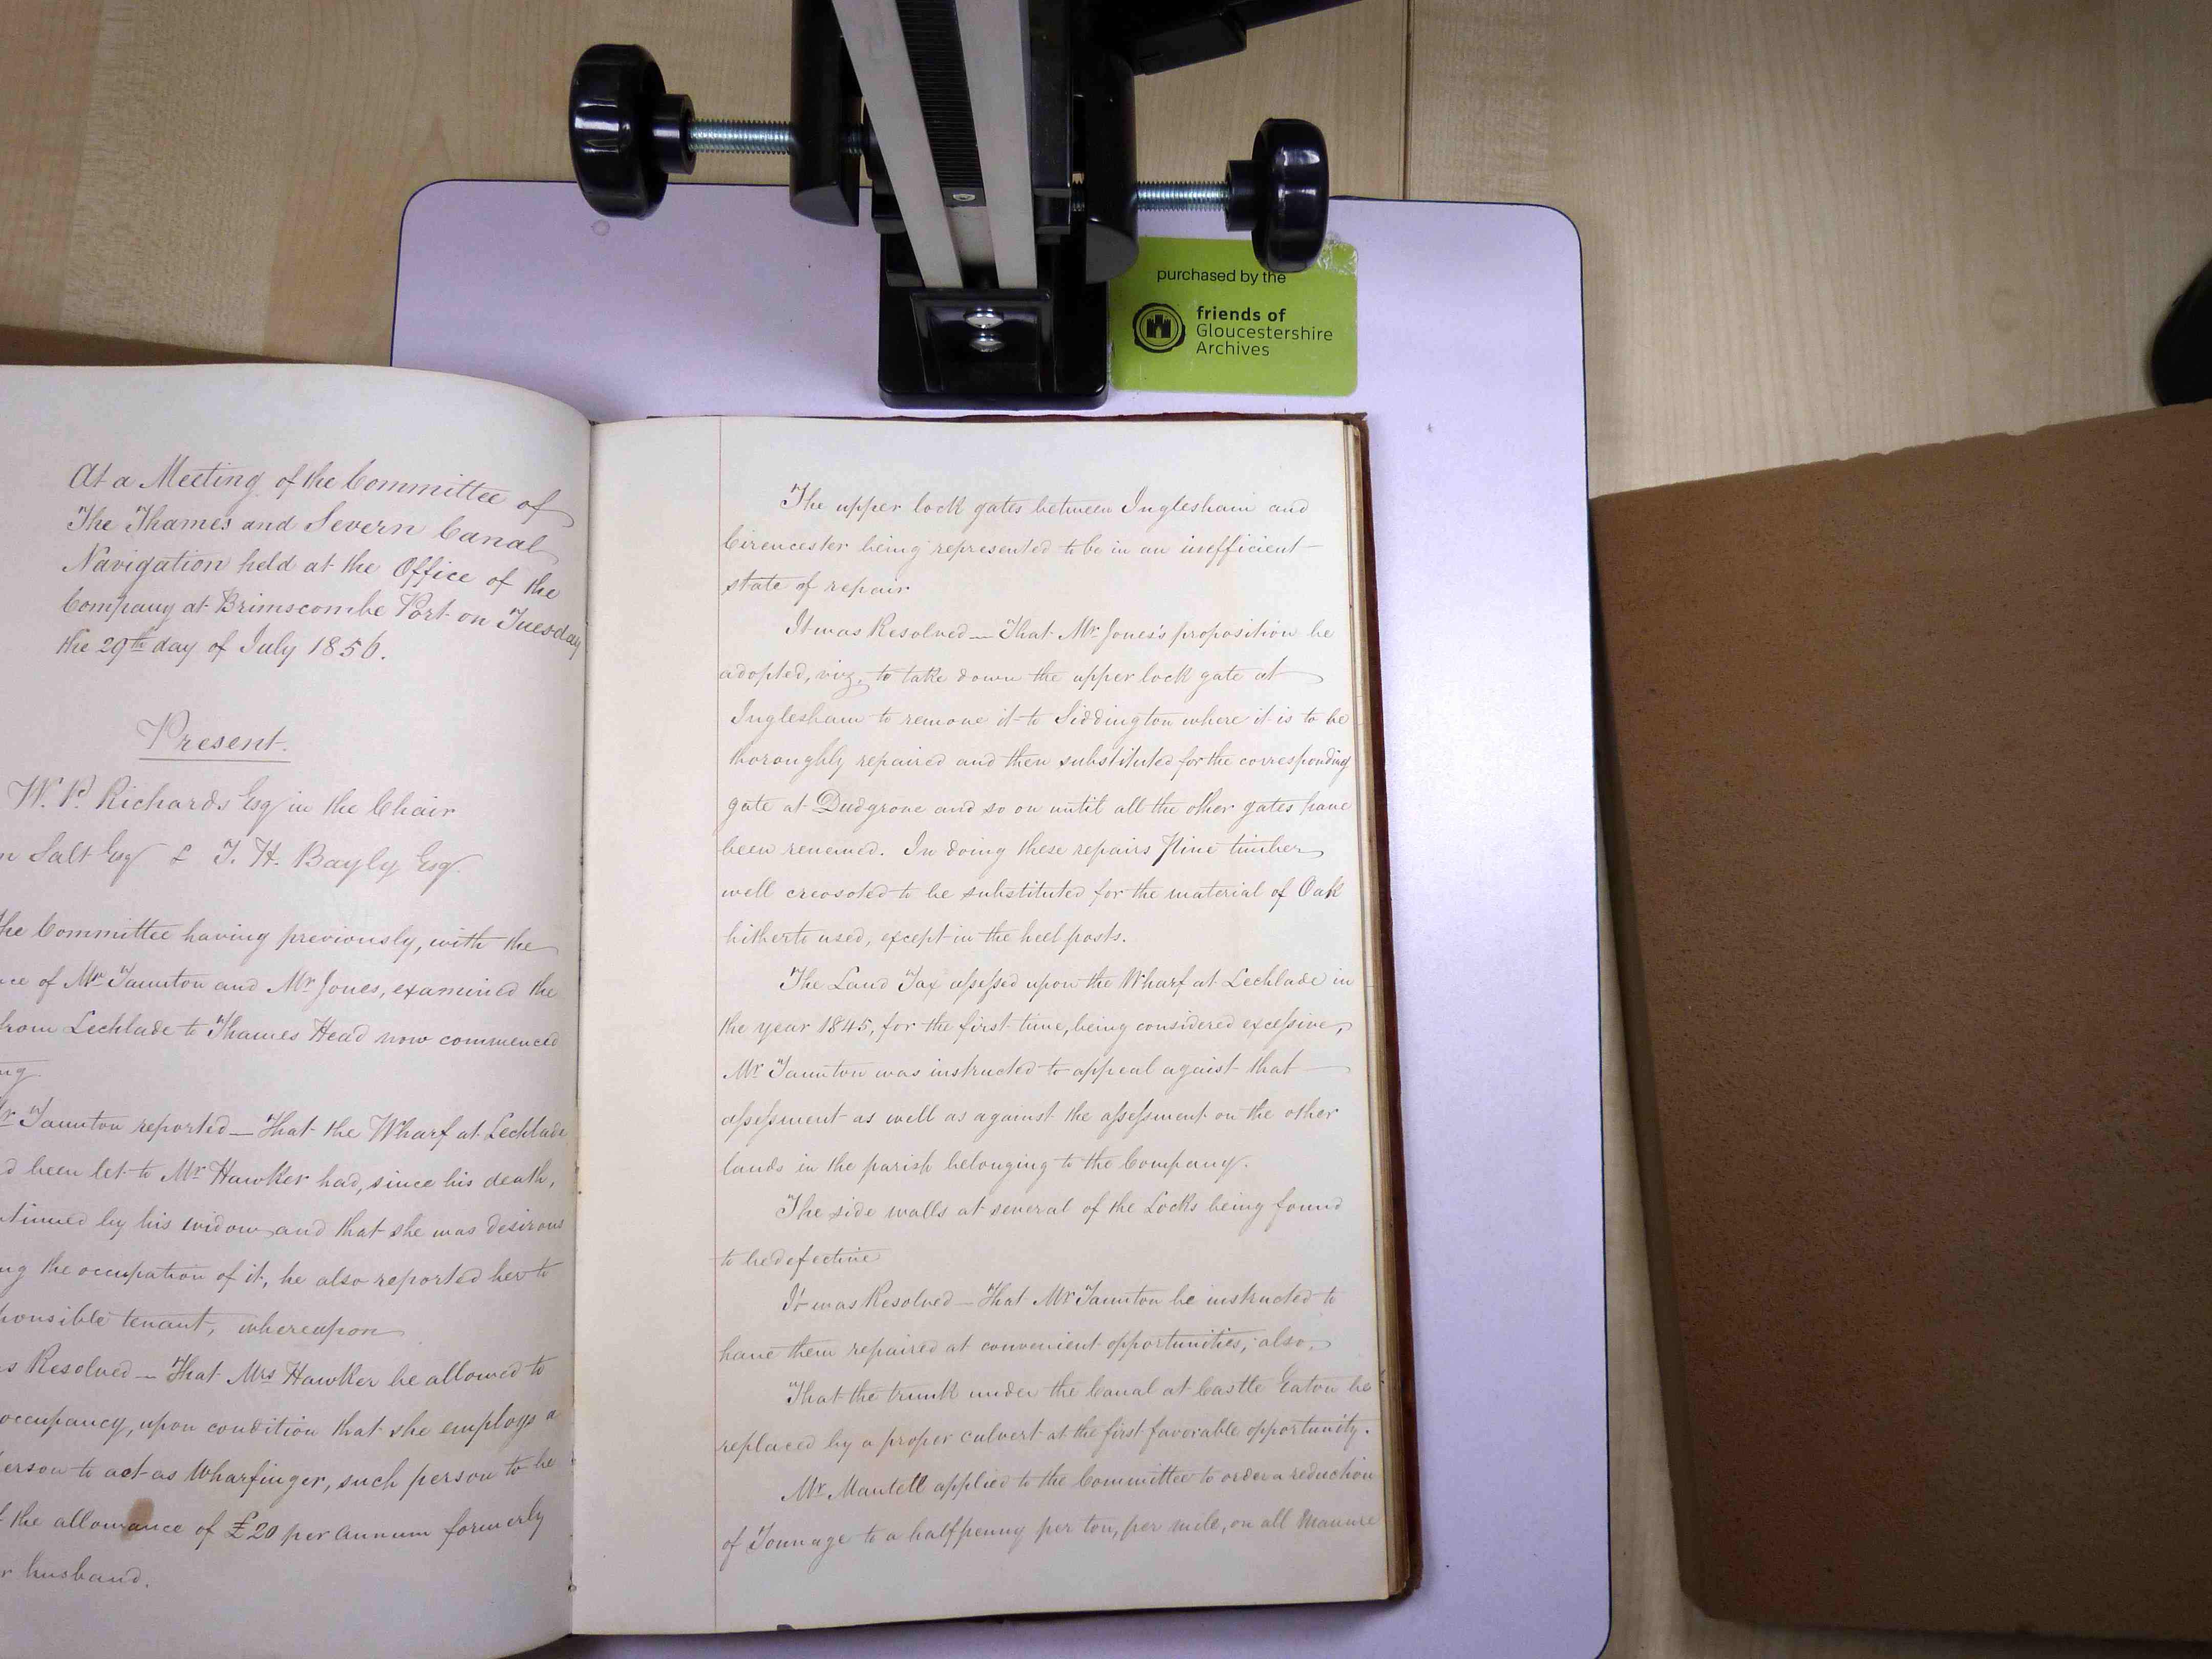 purchased by the
friends of
Gloucestershire
Archives
At a Meeting of the Committee of
The Thames and Severn Canal
Navigation held at the Office of the
Company at Brimscombe Port on Tuesday
the 29th day of July 1856.
Present.
W. P. Richards Esq in the Chair
Salt Esq & T. H. Bayly Esq.
The Committee having previously, with the
of Mr Taunton and Mr Jones, examined the
from Lechlade to Thames Head now commenced
Taunton reported — That the Wharf at Lechlade
been let to Mr Hawker had, since his death,
by his widow and that she was desirous
the occupation of it, he also reported her to
tenant, whereupon
Resolved — That Mrs Hawker be allowed to
occupancy, upon condition that she employs a
to act as Wharfinger, such person to be
the allowance of £20 per annum formerly
husband.
The upper lock gates between Inglesham and
Cirencester being represented to be in an inefficient
state of repair
It was Resolved — That Mr Jones's proposition be
adopted, viz, to take down the upper lock gate at
Inglesham to remove it to Siddington where it is to be
thoroughly repaired and then substituted for the corresponding
gate at Dudgrove and so on until all the other gates have
been renewed. In doing these repairs Pine timber
well creosoted to be substituted for the material of Oak
hitherto used, except in the heel posts.
The Land Tax assessed upon the Wharf at Lechlade in
the year 1845, for the first time, being considered excessive,
Mr Taunton was instructed to appeal agaist that
assessment as well as against the assessment on the other
lands in the parish belonging to the Company.
The side walls at several of the Locks being found
to be defective
It was Resolved — That Mr Taunton be instructed to
have them repaired at convenient opportunities; also,
That the trunk under the Canal at Castle Eaton be
replaced by a proper culvert at the first favorable opportunity.
Mr Mantell applied to the Committee to order a reduction
of Tonnage to a halfpenny per ton, per mile, on all Manure